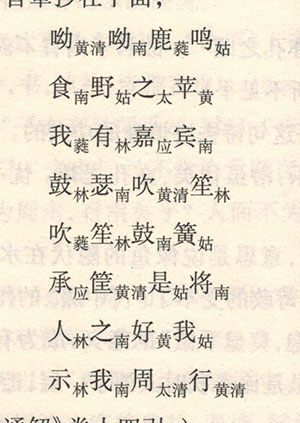 呦黄清呦南鹿蕤鸣姑
食南野姑之太苹黄
我蕤有林嘉应宾南
鼓林瑟南吹黄清笙林
吹蕤笙林鼓南簧姑
承应筐黄清是姑将南
人林之南好黄我姑
示林我南周太清行黄清